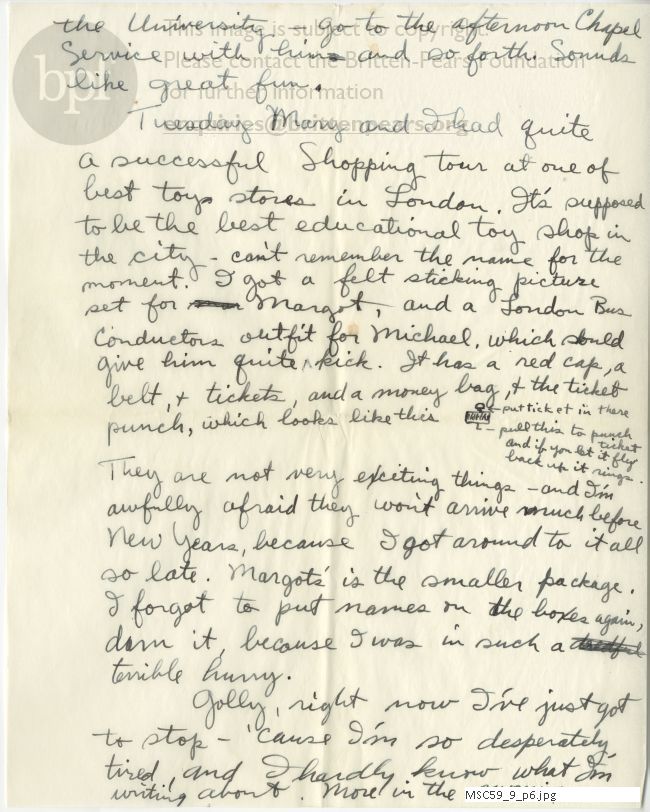 the University - go to the afternoon Chapel
This image is subject to copyright.
Service with him - and so forth. Sounds
Please contact the Britten-Pears Foundation
like great fun.
for further information
bpf
Tuesday Mary and I had quite
enquiries@brittenpears.org
a successful Shopping tour at one of
best toys stores in London. It's supposed
to be the best educational toy shop in
the city - can't remember the name for the
moment. I got a felt sticking picture
set for Margot, and a London Bus
Conductors outfit for Michael, which should
give him quite kick. It has a red cap, a
belt, + tickets, and a money bag, + the ticket
punch, which looks like this
- put ticket in there
- pull this to punch
ticket
and if you let it fly
back up it rings.
They are not very exciting things - and I'm
awfully afraid they won't arrive much before
New Years, because I got around to it all
so late. Margot's is the smaller package.
I forgot to put names on the boxes again,
darn it, because I was in such a
terrible hurry.
Golly, right now I've just got
to stop - 'cause I'm so desperately
tired, and I hardly know what I'm
writing about. More in the
MSC59_9_p6.jpg